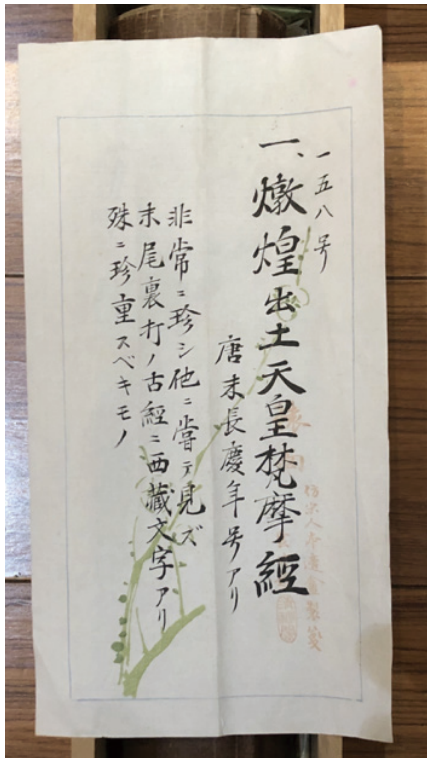 一五八号
一、燉煌出土天皇梵摩經
唐末長慶年号アリ
非常ニ珍シ他ニ嘗テ見ズ
末尾裏打ノ古經ニ西藏文字アリ
殊ニ珍重スベキモノ